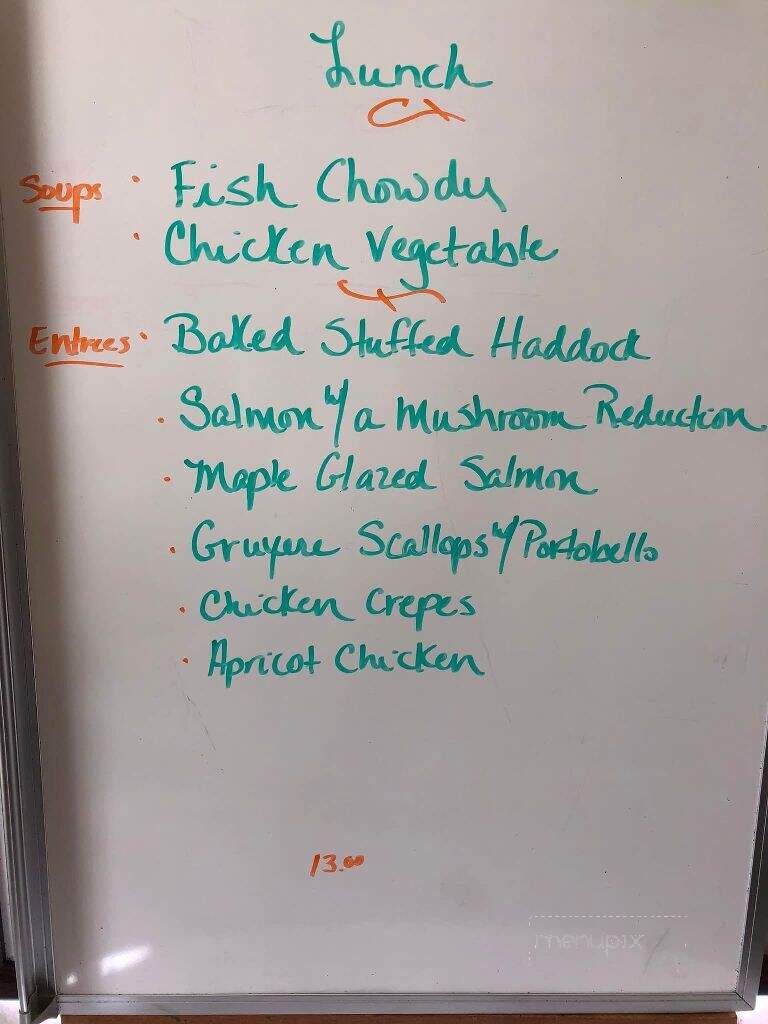 Lunch
Soups · Fish Chowder
· Chicken Vegetable
Entrees · Baked Stuffed Haddock
· Salmon w/ a Mushroom Reduction
· Maple Glazed Salmon
· Gruyere Scallops w/ Portobello
· Chicken Crepes
· Apricot Chicken
13.00
menupix